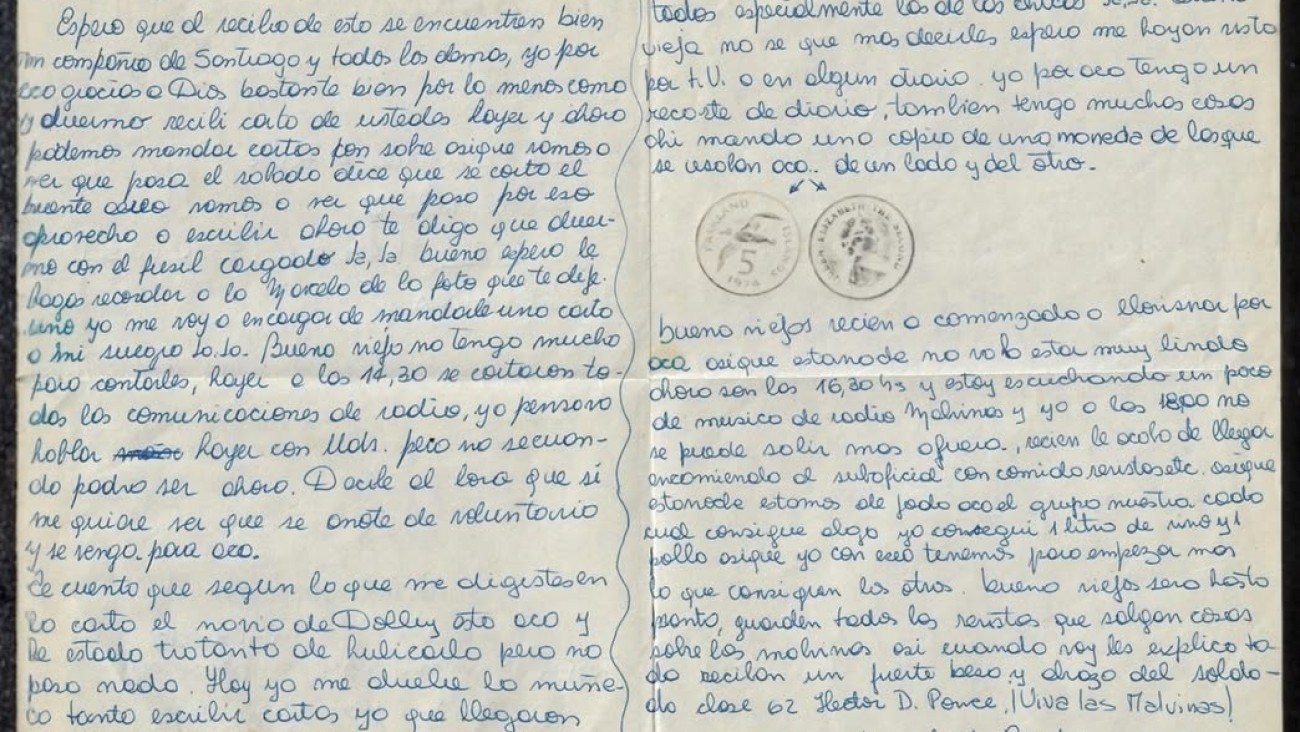 Espero que al recibo de esto se encuentren bien
en compañia de Santiago y todos los demas, yo por
aca gracias a Dios bastante bien por lo menos como
y duermo recibi carta de ustedes hayer y ahora
podemos mandar cartas por sobre asique vamos a
ver que pasa el sabado dice que se corta el
puente aereo vamos a ver que pasa por eso
aprovecho a escribir ahora te digo que duer-
mo con el fusil cargado Ja, Ja bueno espero le
hagas recordar a la Marcelo de la foto que te dije.
uno yo me voy a encargar de mandarle una carta
a mi suegro Ja.Ja. Bueno viejo no tengo mucho
para contarles, hayer a las 14,30 se cortaron to-
das las comunicaciones de radio, yo pensava
hablar hayer con Uds. pero no se cuan-
do podra ser ahora. Decile al loco que si
me quiere ver que se anote de voluntario
y se venga para aca.
Te cuento que segun lo que me digistes en
la carta el novio de Dolly esta aca y
he estado tratando de hubicarlo pero no
pasa nada. Hoy ya me duele la muñe-
ca tanto escribir cartas ya que llegaron
todas especialmente las de las chicas
vieja no se que mas decirles espero me hayan visto
por t.V. o en algun diario. yo por aca tengo un
recorte de diario, tambien tengo muchas cosas
ahi mando una copia de una moneda de las que
se usaban aca.. de un lado y del otro.
FALKLAND ISLANDS
5
1974
QUEEN ELIZABETH THE SECOND
bueno viejos recien a comenzado a lloviznar por
aca asique estanoche no va a estar muy lindo
ahora son las 16,30 hs y estoy escuchando un poco
de musica de radio Malvinas y ya a las 18,00 no
se puede salir mas afuera., recien le acaba de llegar
encomienda al suboficial con comida revistas etc. asique
estanoche estamos de joda aca el grupo nuestro cada
cual consigue algo yo consegui 1 litro de vino y 1
pollo asique ya con eso tenemos para empezar mas
lo que consigan los otros. bueno viejos sera hasta
pronto, guarden todas las revistas que salgan cosas
sobre las malvinas asi cuando voy les explico to-
do reciban un fuerte beso y abrazo del solda-
do clase 62 Hector D. Ponce. ¡Viva las Malvinas!